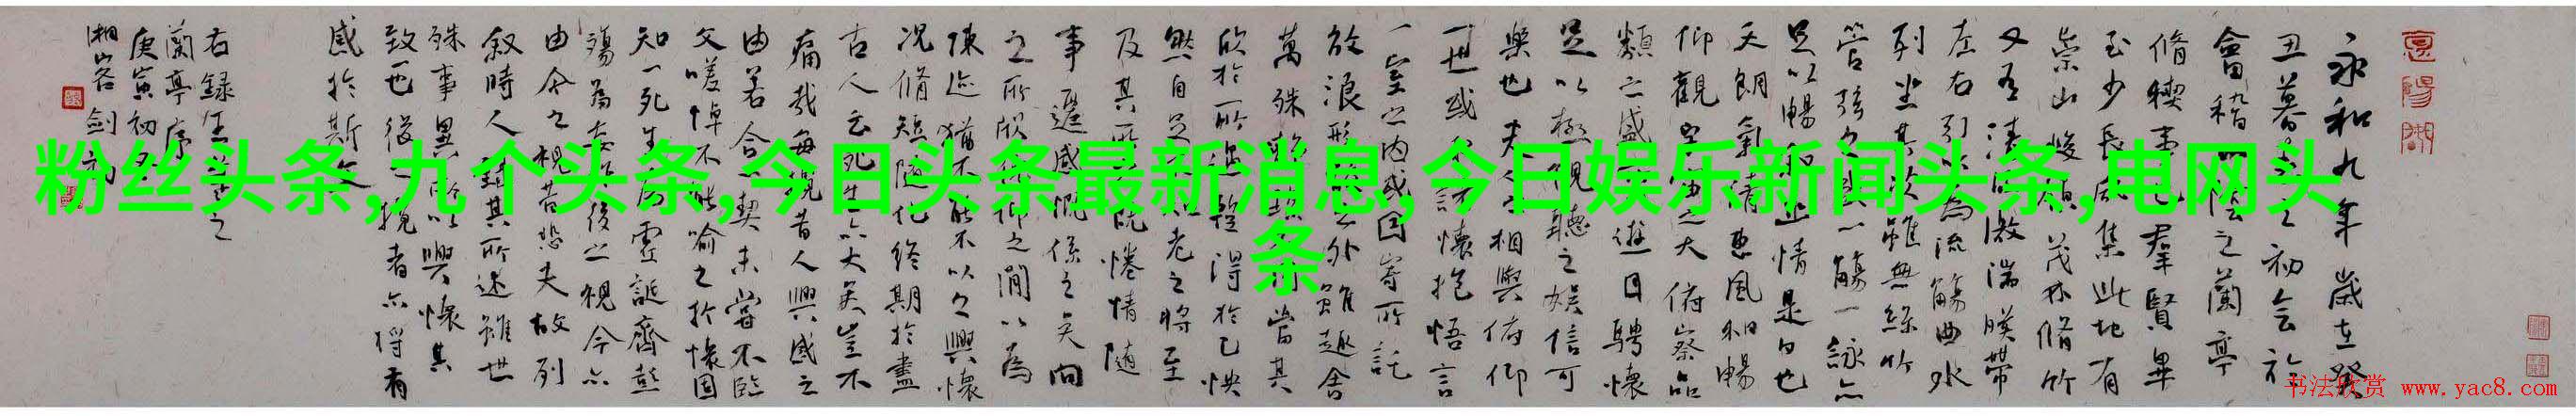 粉丝头条,九个头条,今日头条最新消息,今日娱乐新闻头条,电网头
条
永和九年歲在癸
丑暮春之初会於
會稽山陰之蘭亭
脩禊事也羣賢畢
至少長咸集此地有
崇山峻領茂林脩竹
又有清流激湍暎帶
左右引以為流觴曲水
列坐其次雖無絲竹
管弦之盛一觴一詠亦
足以暢敘幽情是日也
天朗氣清惠風和暢
仰觀宇宙之大俯察品
類之盛所以遊目騁懷
足以極視聽之娛信可
樂也夫人之相與俯仰
一世或取諸懷抱悟言
一室之内或因寄所託
放浪形骸之外雖趣舍
萬殊靜躁不同當其
欣於所遇暫得於己怏
然自足不知老之將至
及其所之既惓情隨
事遷感慨係之矣向
之所欣俛仰之間以為
陳迹猶不能不以之興懷
況脩短隨化終期於盡
古人云死生亦大矣豈不
痛哉每攬昔人興感之
由若合一契未嘗不臨
文嗟悼不能喻之於懷固
知一死生為虛誕齊彭
殤為妄作後之視今亦
由今之視昔悲夫故列
叙時人録其所述雖世
殊事異所以興懷其
致一也後之攬者亦將有
感於斯文
右録王羲之
蘭亭序
庚寅初夏
书法欣赏 www.yac8.com